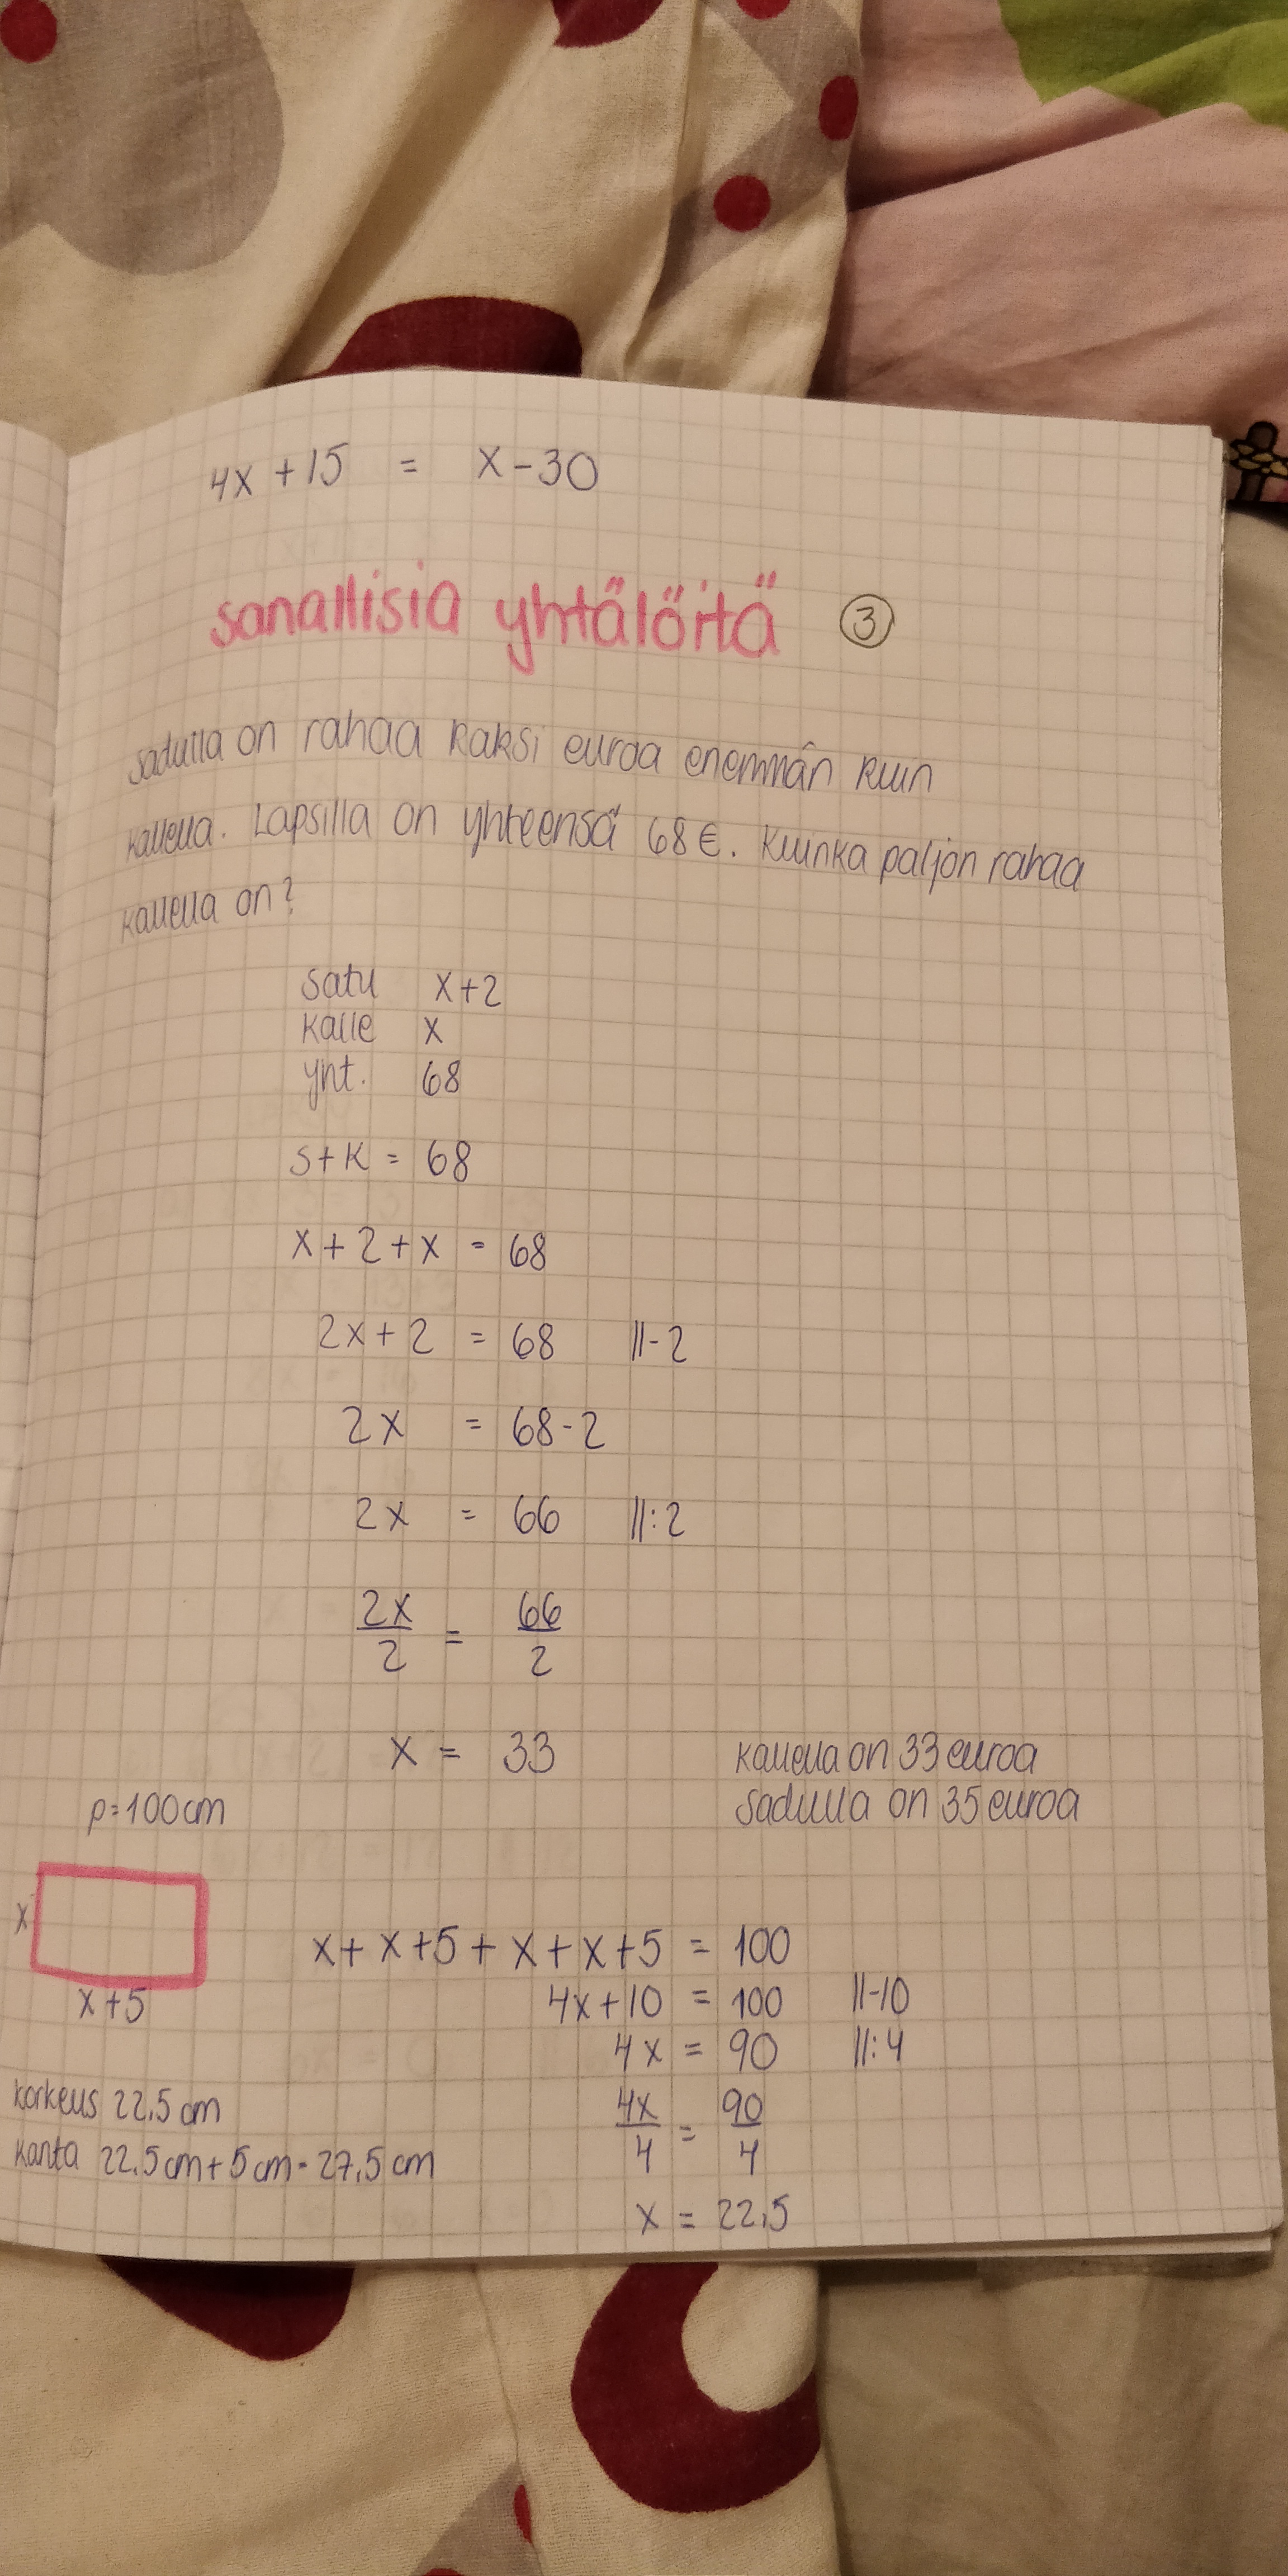 4x + 15 = x - 30
sanallisia yhtälöitä ③
Sadulla on rahaa kaksi euroa enemmän kuin
kallella. Lapsilla on yhteensä 68 €. Kuinka paljon rahaa
kallella on?
satu x + 2
kalle x
yht. 68
S + K = 68
x + 2 + x = 68
2x + 2 = 68 ||-2
2x = 68 - 2
2x = 66 ||:2
2x/2 = 66/2
x = 33
kallella on 33 euroa
sadulla on 35 euroa
p = 100cm
x
x + 5
x + x + 5 + x + x + 5 = 100
4x + 10 = 100 ||-10
4x = 90 ||:4
4x/4 = 90/4
x = 22,5
korkeus 22,5 cm
kanta 22,5cm + 5cm = 27,5cm